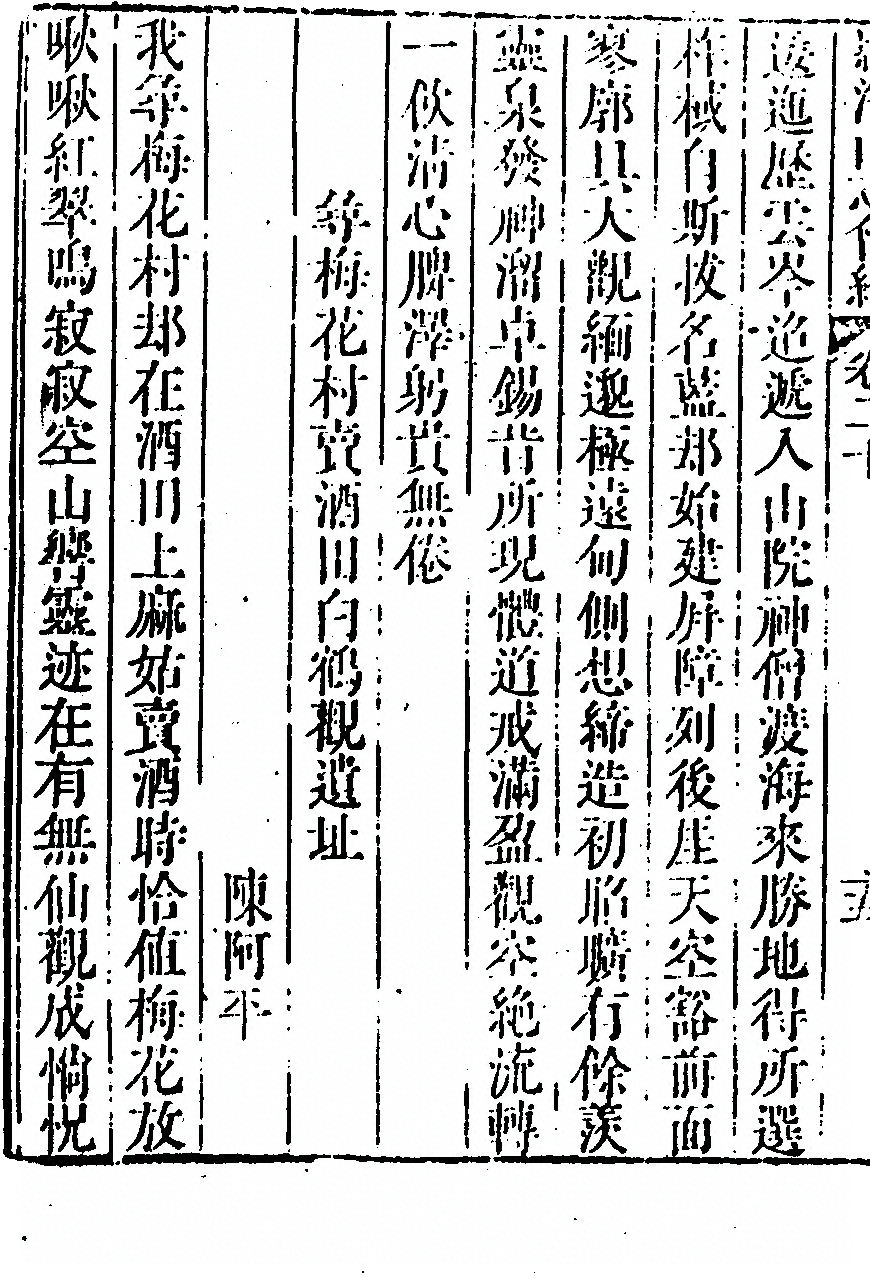 卷二十
逶迤歷雲岑迢遞入山院神僧渡海來勝地得所選
柞棫自斯拔名藍却始建屏障列後崖天空豁前面
寥廓具大觀緬邈極遠甸側想締造初貽曠有餘羨
靈泉發神溜卓錫昔所現體道戒滿盈觀空絶流轉
一飲清心脾澤躬貴無倦
尋梅花村賣酒田白鶴觀遺址
陳阿平
我尋梅花村却在酒田上麻姑賣酒時恰値梅花放
啾啾紅翠鳴寂寂空山響靈迹在有無仙觀成惝怳